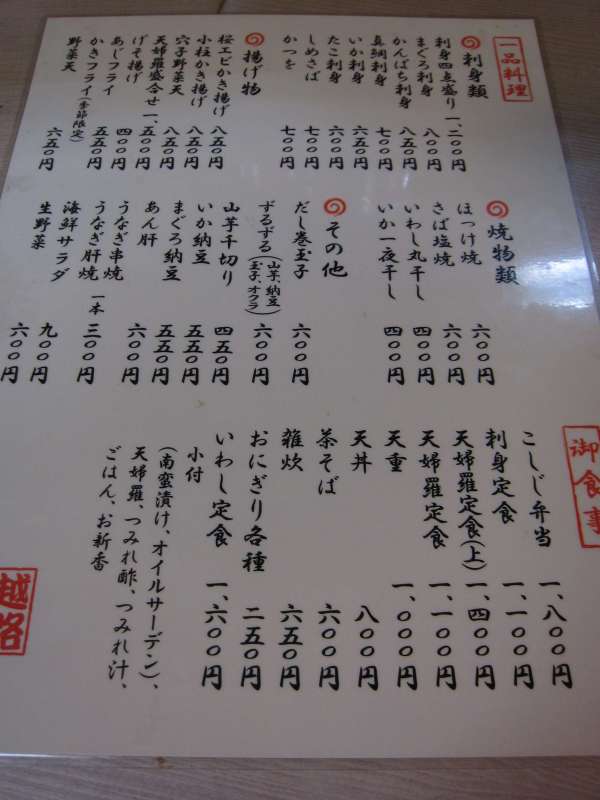 一品料理
刺身類
刺身四点盛り 一、二〇〇円
まぐろ刺身 八〇〇円
かんぱち刺身 八五〇円
真鯛刺身 七〇〇円
いか刺身 六五〇円
たこ刺身 六〇〇円
しめさば 七〇〇円
かつを 七〇〇円
揚げ物
桜エビかき揚げ 八五〇円
小柱かき揚げ 八五〇円
穴子野菜天 八五〇円
天婦羅盛合せ 一、五〇〇円
げそ揚げ 四〇〇円
あじフライ 五五〇円
かきフライ(季節限定)
野菜天 六五〇円
焼物類
ほっけ焼 六〇〇円
さば塩焼 六〇〇円
いわし丸干し 四〇〇円
いか一夜干し 四〇〇円
その他
だし巻玉子 六〇〇円
ずるずる(山芋、納豆 玉子、オクラ) 六〇〇円
山芋千切り 四五〇円
いか納豆 五五〇円
まぐろ納豆 五五〇円
あん肝 六〇〇円
うなぎ串焼
うなぎ肝焼 一本 三〇〇円
海鮮サラダ 九〇〇円
生野菜 六〇〇円
御食事
こしじ弁当 一、八〇〇円
刺身定食 一、一〇〇円
天婦羅定食(上) 一、四〇〇円
天婦羅定食 一、一〇〇円
天重 一、〇〇〇円
天丼 八〇〇円
茶そば 六〇〇円
雑炊 六五〇円
おにぎり各種 二五〇円
いわし定食 一、六〇〇円
小付
(南蛮漬け、オイルサーデン)、
天婦羅、つみれ酢、つみれ汁、
ごはん、お新香
越路